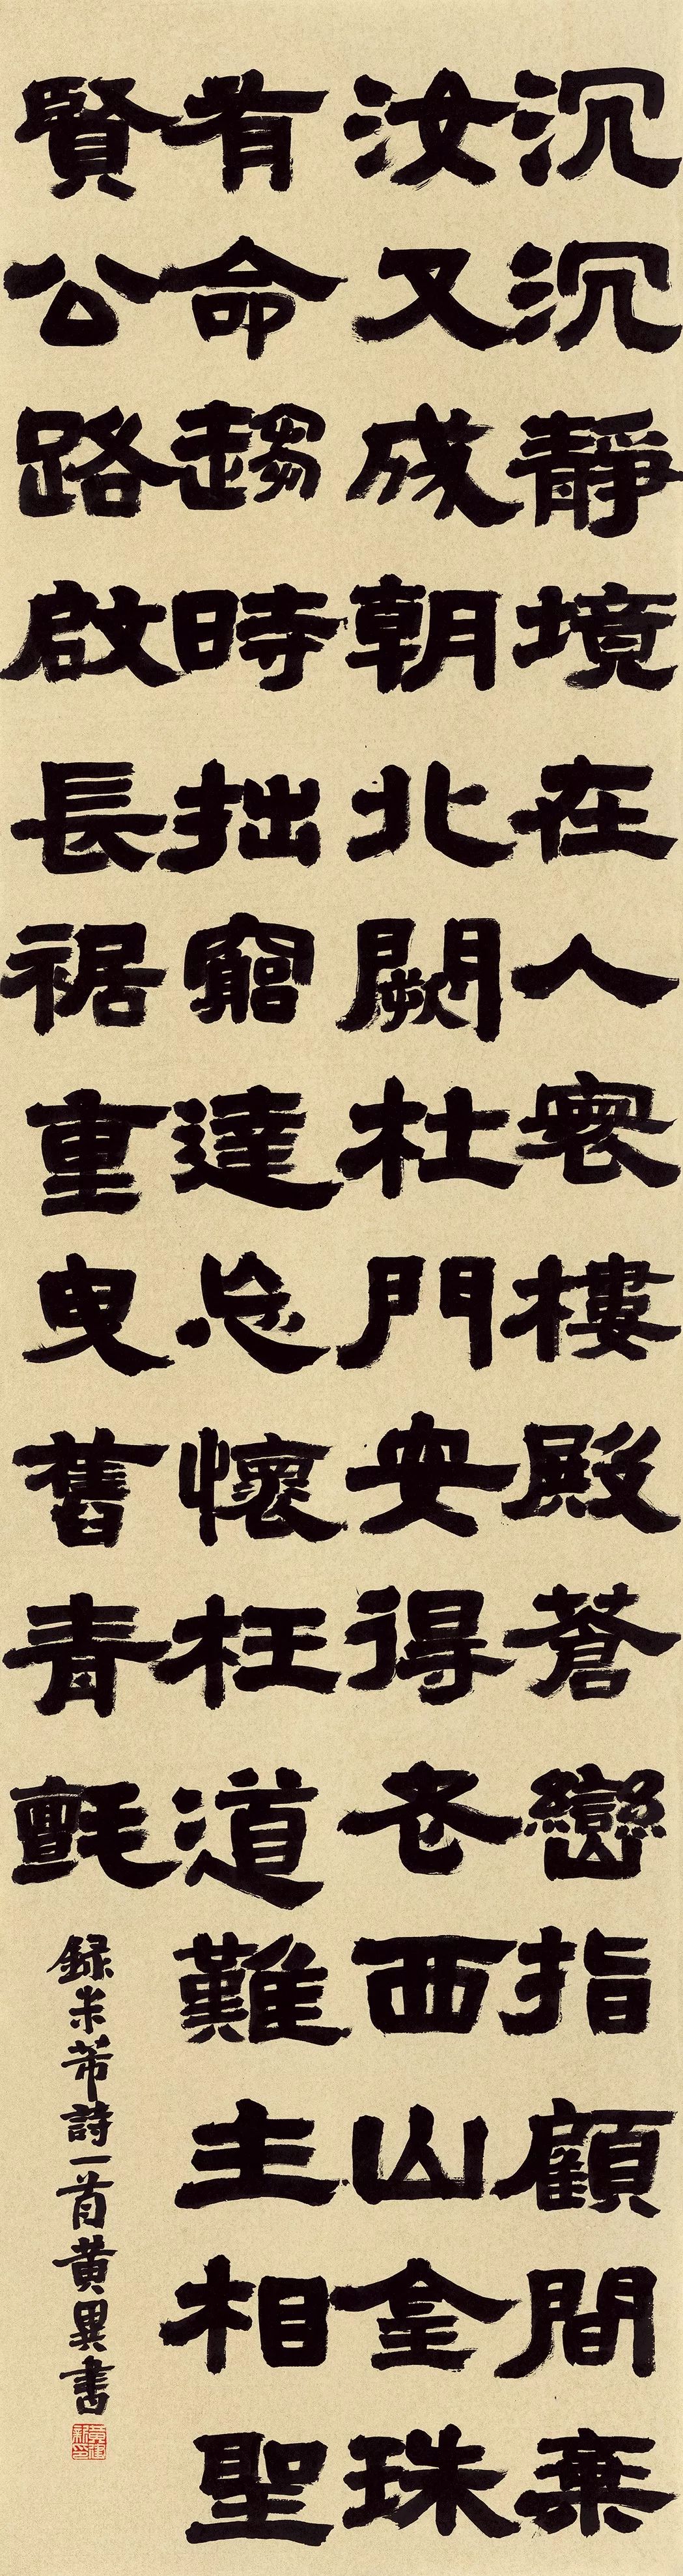 沉沉靜境在人寰樓殿蒼巒指顧間棄
汝又成朝北闕杜門安得老西山金珠
有命趨時拙窮達忘懷枉道難主相聖
賢公路啟長裾重曳舊青氈
録米芾詩一首黄異書